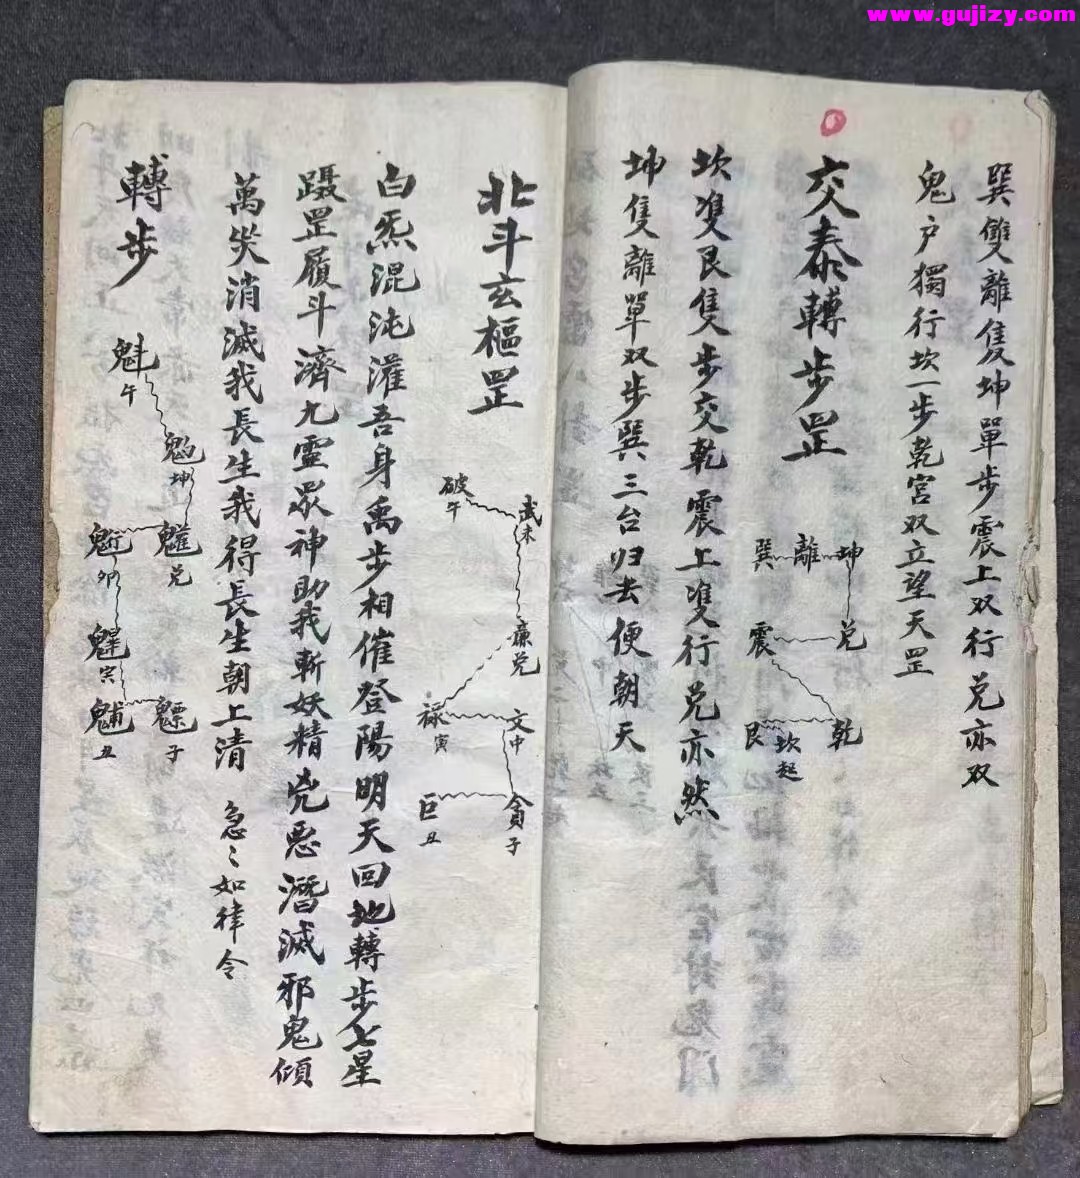 www.gujizy.com
巽雙離隻坤單步震上双行兑亦双
鬼户獨行坎一步乾宮双立望天罡
交泰轉步罡
巽 離 坤
震 兑
艮 坎起 乾
坎雙艮隻步交乾震上雙行兑亦然
坤隻離單双步巽三台归去便朝天
北斗玄樞罡
破午
武未
廉兑
禄寅
文中
巨丑
貪子
白炁混沌灌吾身禹步相催登陽明天回地轉步七星
躡罡履斗濟九靈眾神助我斬妖精兇惡潛滅邪鬼傾
萬災消滅我長生我得長生朝上清 急〻如律令
轉步
魁午
坤
兑
卯
丑
子